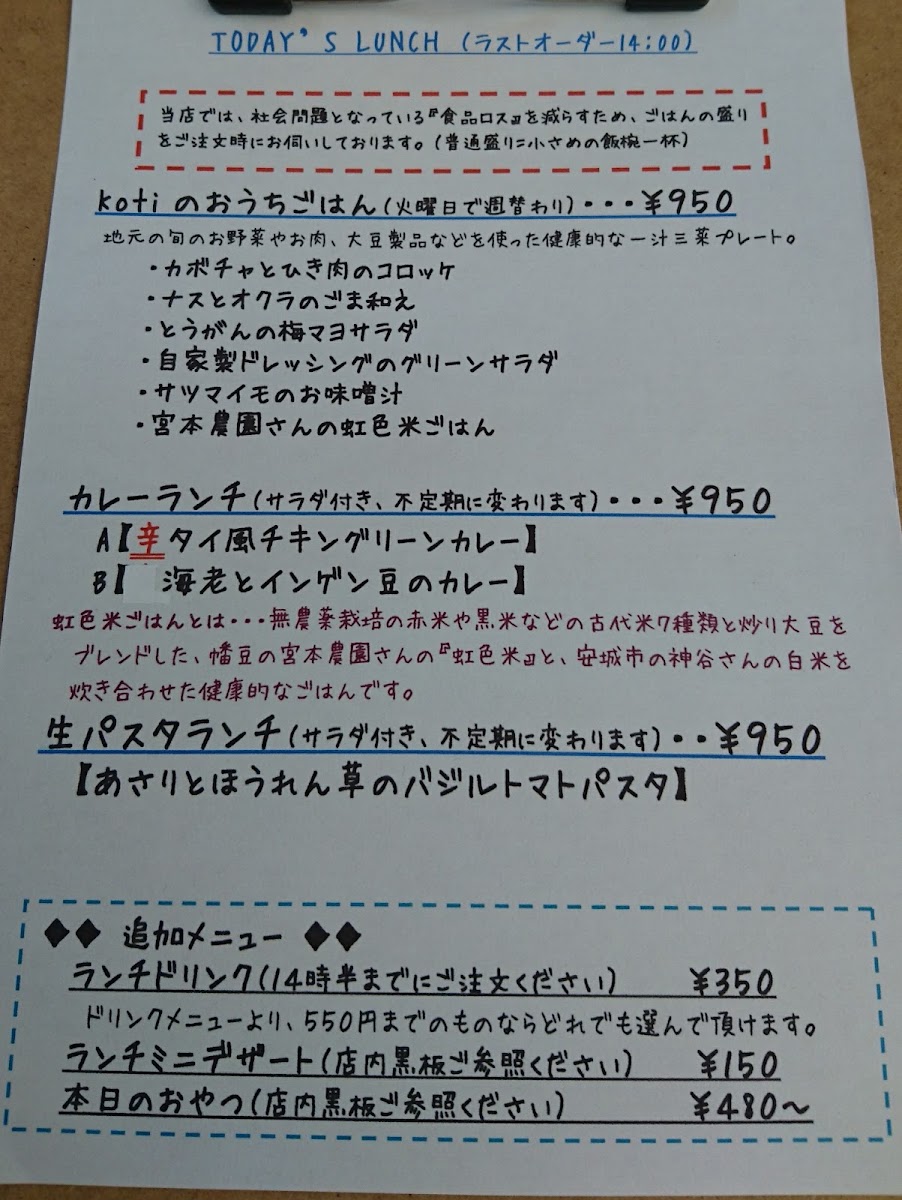 TODAY'S LUNCH (ラストオーダー14:00)
当店では、社会問題となっている『食品ロス』を減らすため、ごはんの盛り
をご注文時にお伺いしております。(普通盛り=小さめの飯椀一杯)
kotiのおうちごはん(火曜日で週替わり)・・・¥950
地元の旬のお野菜やお肉、大豆製品などを使った健康的な一汁三菜プレート。
・カボチャとひき肉のコロッケ
・ナスとオクラのごま和え
・とうがんの梅マヨサラダ
・自家製ドレッシングのグリーンサラダ
・サツマイモのお味噌汁
・宮本農園さんの虹色米ごはん
カレーランチ(サラダ付き、不定期に変わります)・・・¥950
A【辛タイ風チキングリーンカレー】
B【 海老とインゲン豆のカレー】
虹色米ごはんとは・・・無農薬栽培の赤米や黒米などの古代米7種類と炒り大豆を
ブレンドした、幡豆の宮本農園さんの『虹色米』と、安城市の神谷さんの白米を
炊き合わせた健康的なごはんです。
生パスタランチ(サラダ付き、不定期に変わります)・・¥950
【あさりとほうれん草のバジルトマトパスタ】
◆◆ 追加メニュー ◆◆
ランチドリンク(14時半までにご注文ください) ¥350
ドリンクメニューより、550円までのものならどれでも選んで頂けます。
ランチミニデザート(店内黒板ご参照ください) ¥150
本日のおやつ(店内黒板ご参照ください) ¥480~